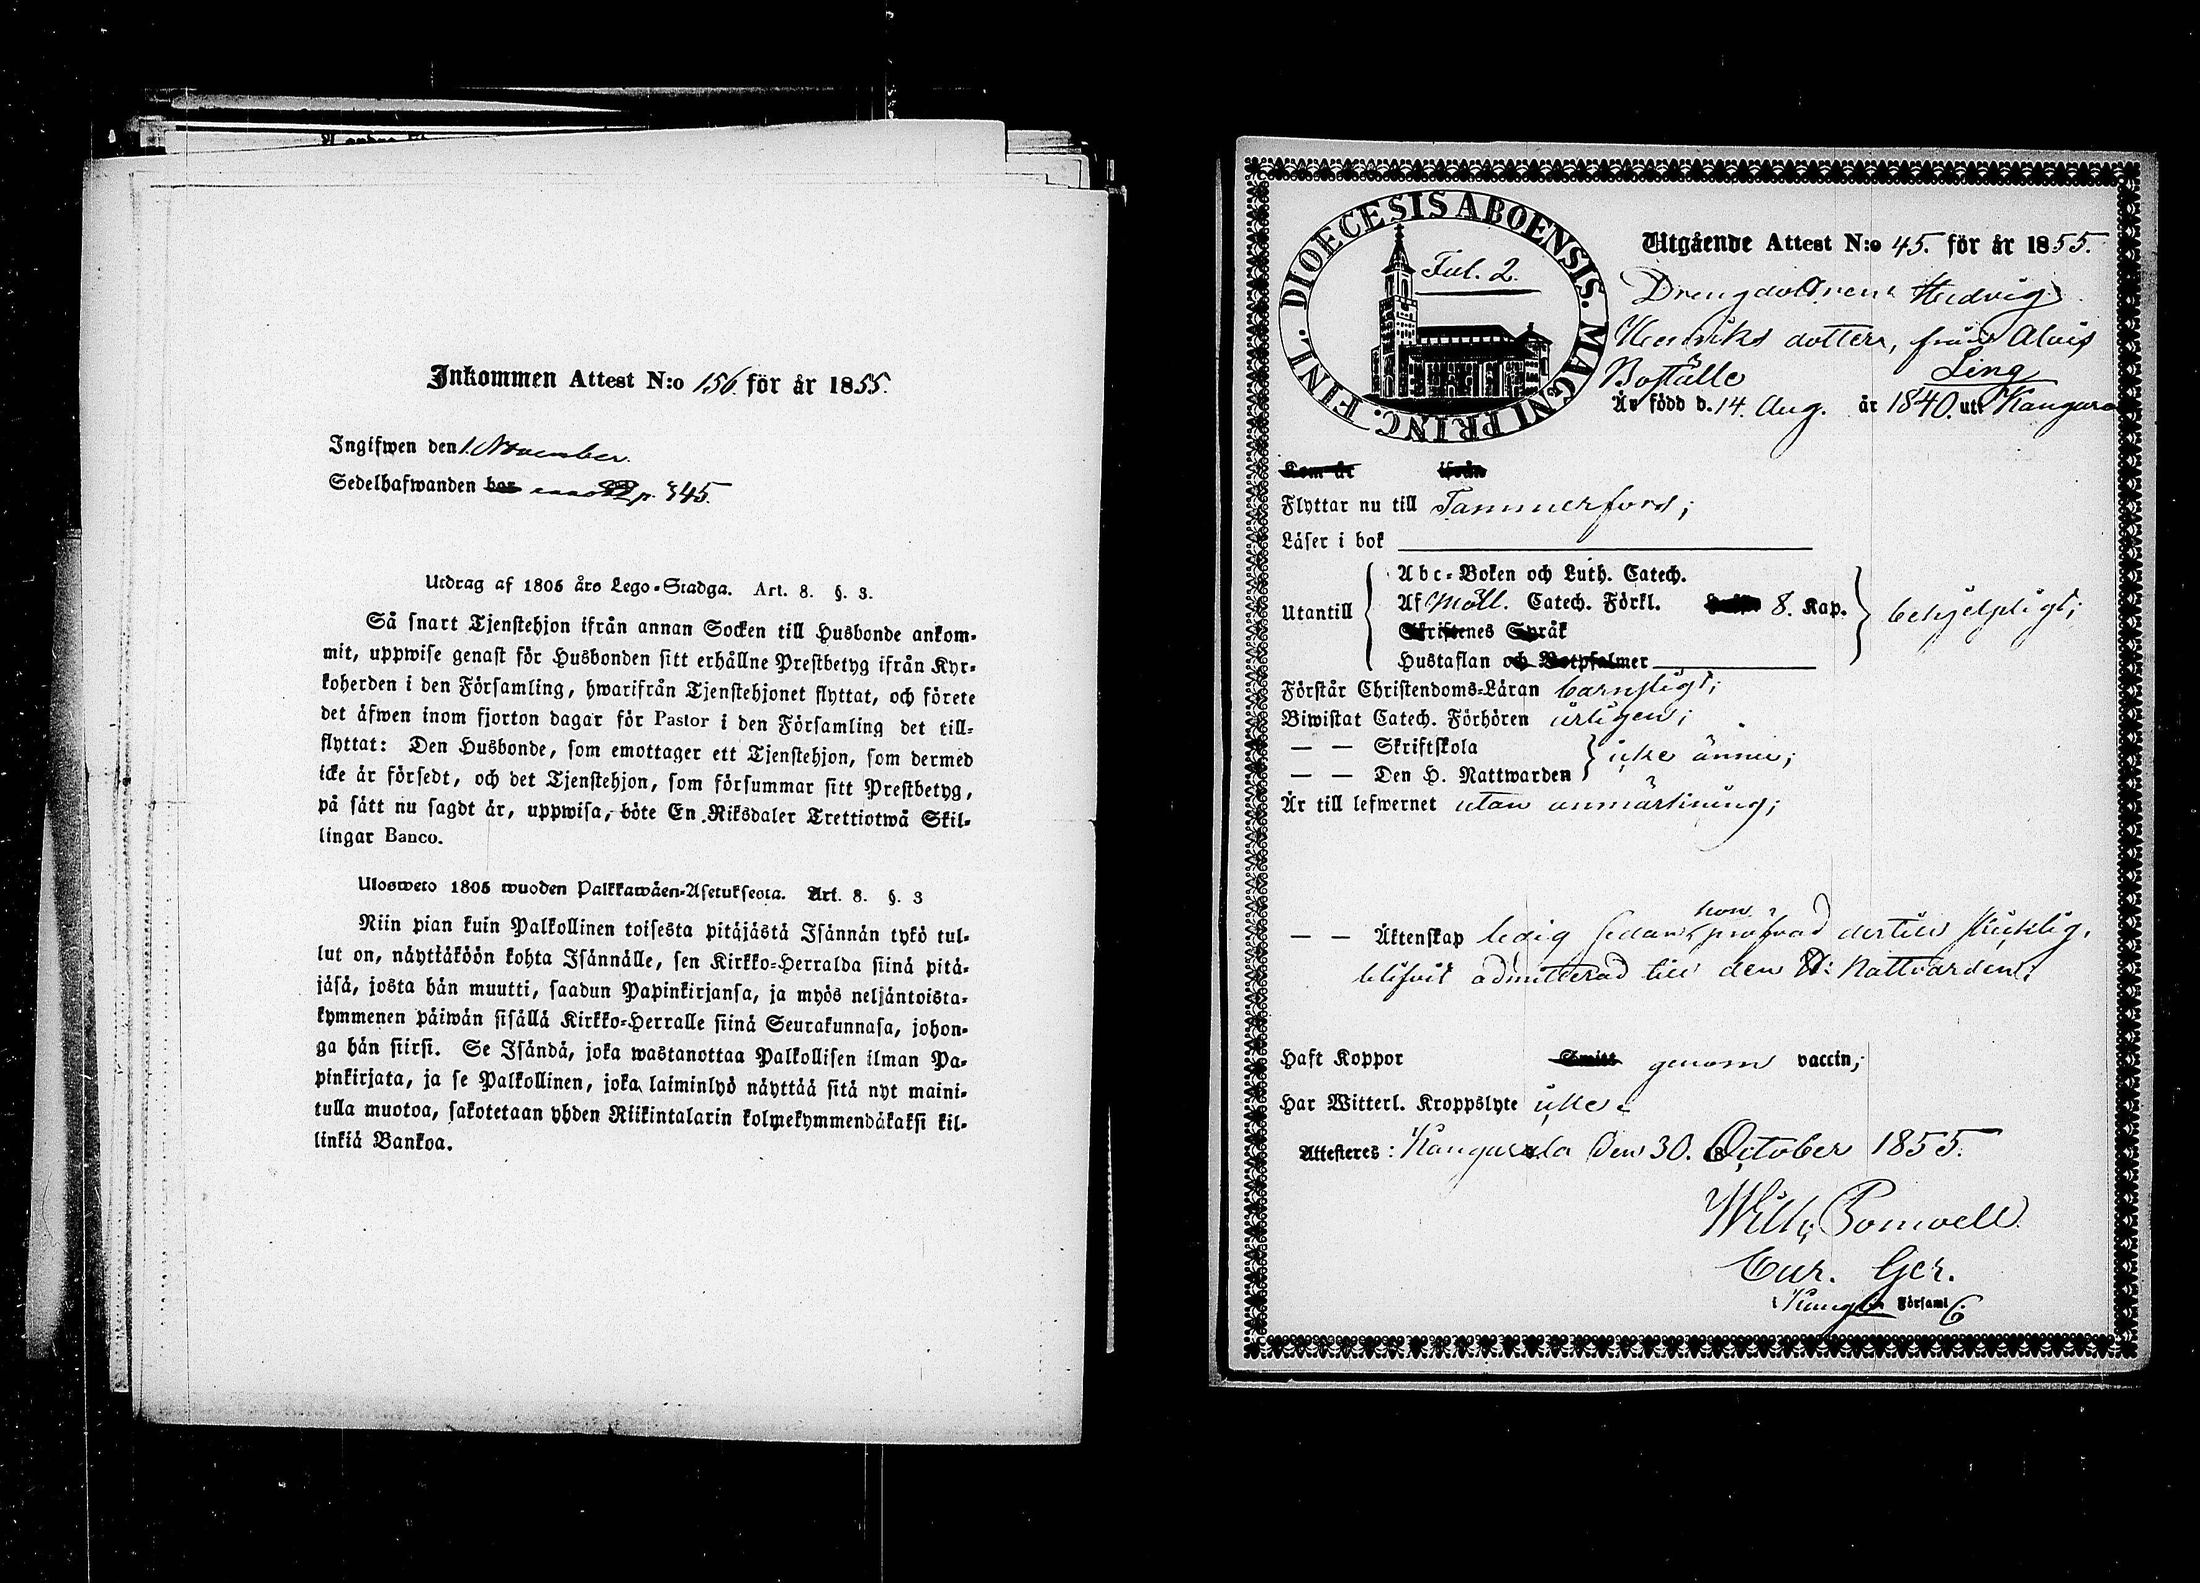 Inkommen Attest N:o 156. för år 1855.
Ingifwen den 1. November.
Sedelhafwanden bor p. 345.
Utdrag af 1805 års Lego-Stadga. Art. 8. §. 3.
Så snart Tjenstehjon ifrån annan Socken till Husbonde ankom-
mit, uppwise genast för Husbonden sitt erhållne Prestbetyg ifrån Kyr-
koherden i den Församling, hwarifrån Tjenstehjonet flyttat, och förete
det äfwen inom fjorton dagar för Pastor i den Församling det till-
flyttat: Den Husbonde, som emottager ett Tjenstehjon, som dermed
icke är försedt, och det Tjenstehjon, som försummar sitt Prestbetyg,
på sätt nu sagdt är, uppwisa, böte En Riksdaler Trettiotwå Skil-
lingar Banco.
Ulosweto 1805 wuoden Palkkawäen-Asetuksesta. Art. 8. §. 3
Niin pian kuin Palkollinen toisesta pitäjästä Isännän tykö tul-
lut on, näyttäköön kohta Isännälle, sen Kirkko-Herralda siinä pitä-
jäsä, josta hän muutti, saadun Papinkirjansa, ja myös neljäntoista-
kymmenen päiwän sisällä Kirkko-Herralle siinä Seurakunnasa, johon-
ga hän siirsi. Se Isändä, joka wastanottaa Palkollisen ilman Pa-
pinkirjata, ja se Palkollinen, joka laiminlyö näyttää sitä nyt maini-
tulla muotoa, sakotetaan yhden Riikintalarin kolmekymmendäkaksi kil-
linkiä Bankoa.
DIOECESIS ABOENSIS. MAGNI PRINC. FINL.
Ful. 2.
Utgående Attest N:o 45. för år 1855.
Drengdottren Hedvig
Henriks dotter, från
Boställe Ling
Är född d. 14. Aug. år 1840. uti Kangasa
Kom år ifrån
Flyttar nu till Tammerfors;
Läser i bok
Utantill
Abc-Boken och Luth. Catech.
Af Möll. Catech. Förkl. 8. Kap.
Skriftenes Språk
Hustaflan och Botpsalmer
behjelpligt;
Förstår Christendoms-Läran barnsligt;
Biwistat Catech. Förhören årligen;
— — Skriftskola
— — Den H. Nattwarden
icke ännu;
Är till lefwernet utan anmärkning;
— — Äktenskap ledig sedan hon pröfvad dertill skicklig,
blifvit admitterad till den H: Nattvarden;
Haft Koppor genom vaccin;
Har Witterl. Kroppslyte icke.
Attesteres: Kangasala den 30. October 1855.
Will. Pomoell
Cur. Ger.
i Församl